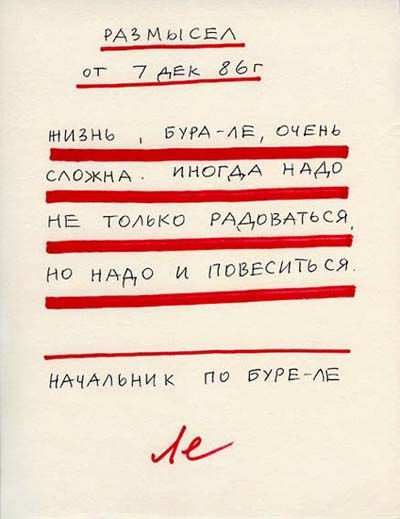 РАЗМЫСЕЛ
ОТ 7 ДЕК 86Г
ЖИЗНЬ, БУРА-ЛЕ, ОЧЕНЬ
СЛОЖНА. ИНОГДА НАДО
НЕ ТОЛЬКО РАДОВАТЬСЯ,
НО НАДО И ПОВЕСИТЬСЯ.
НАЧАЛЬНИК ПО БУРЕ-ЛЕ
Ле